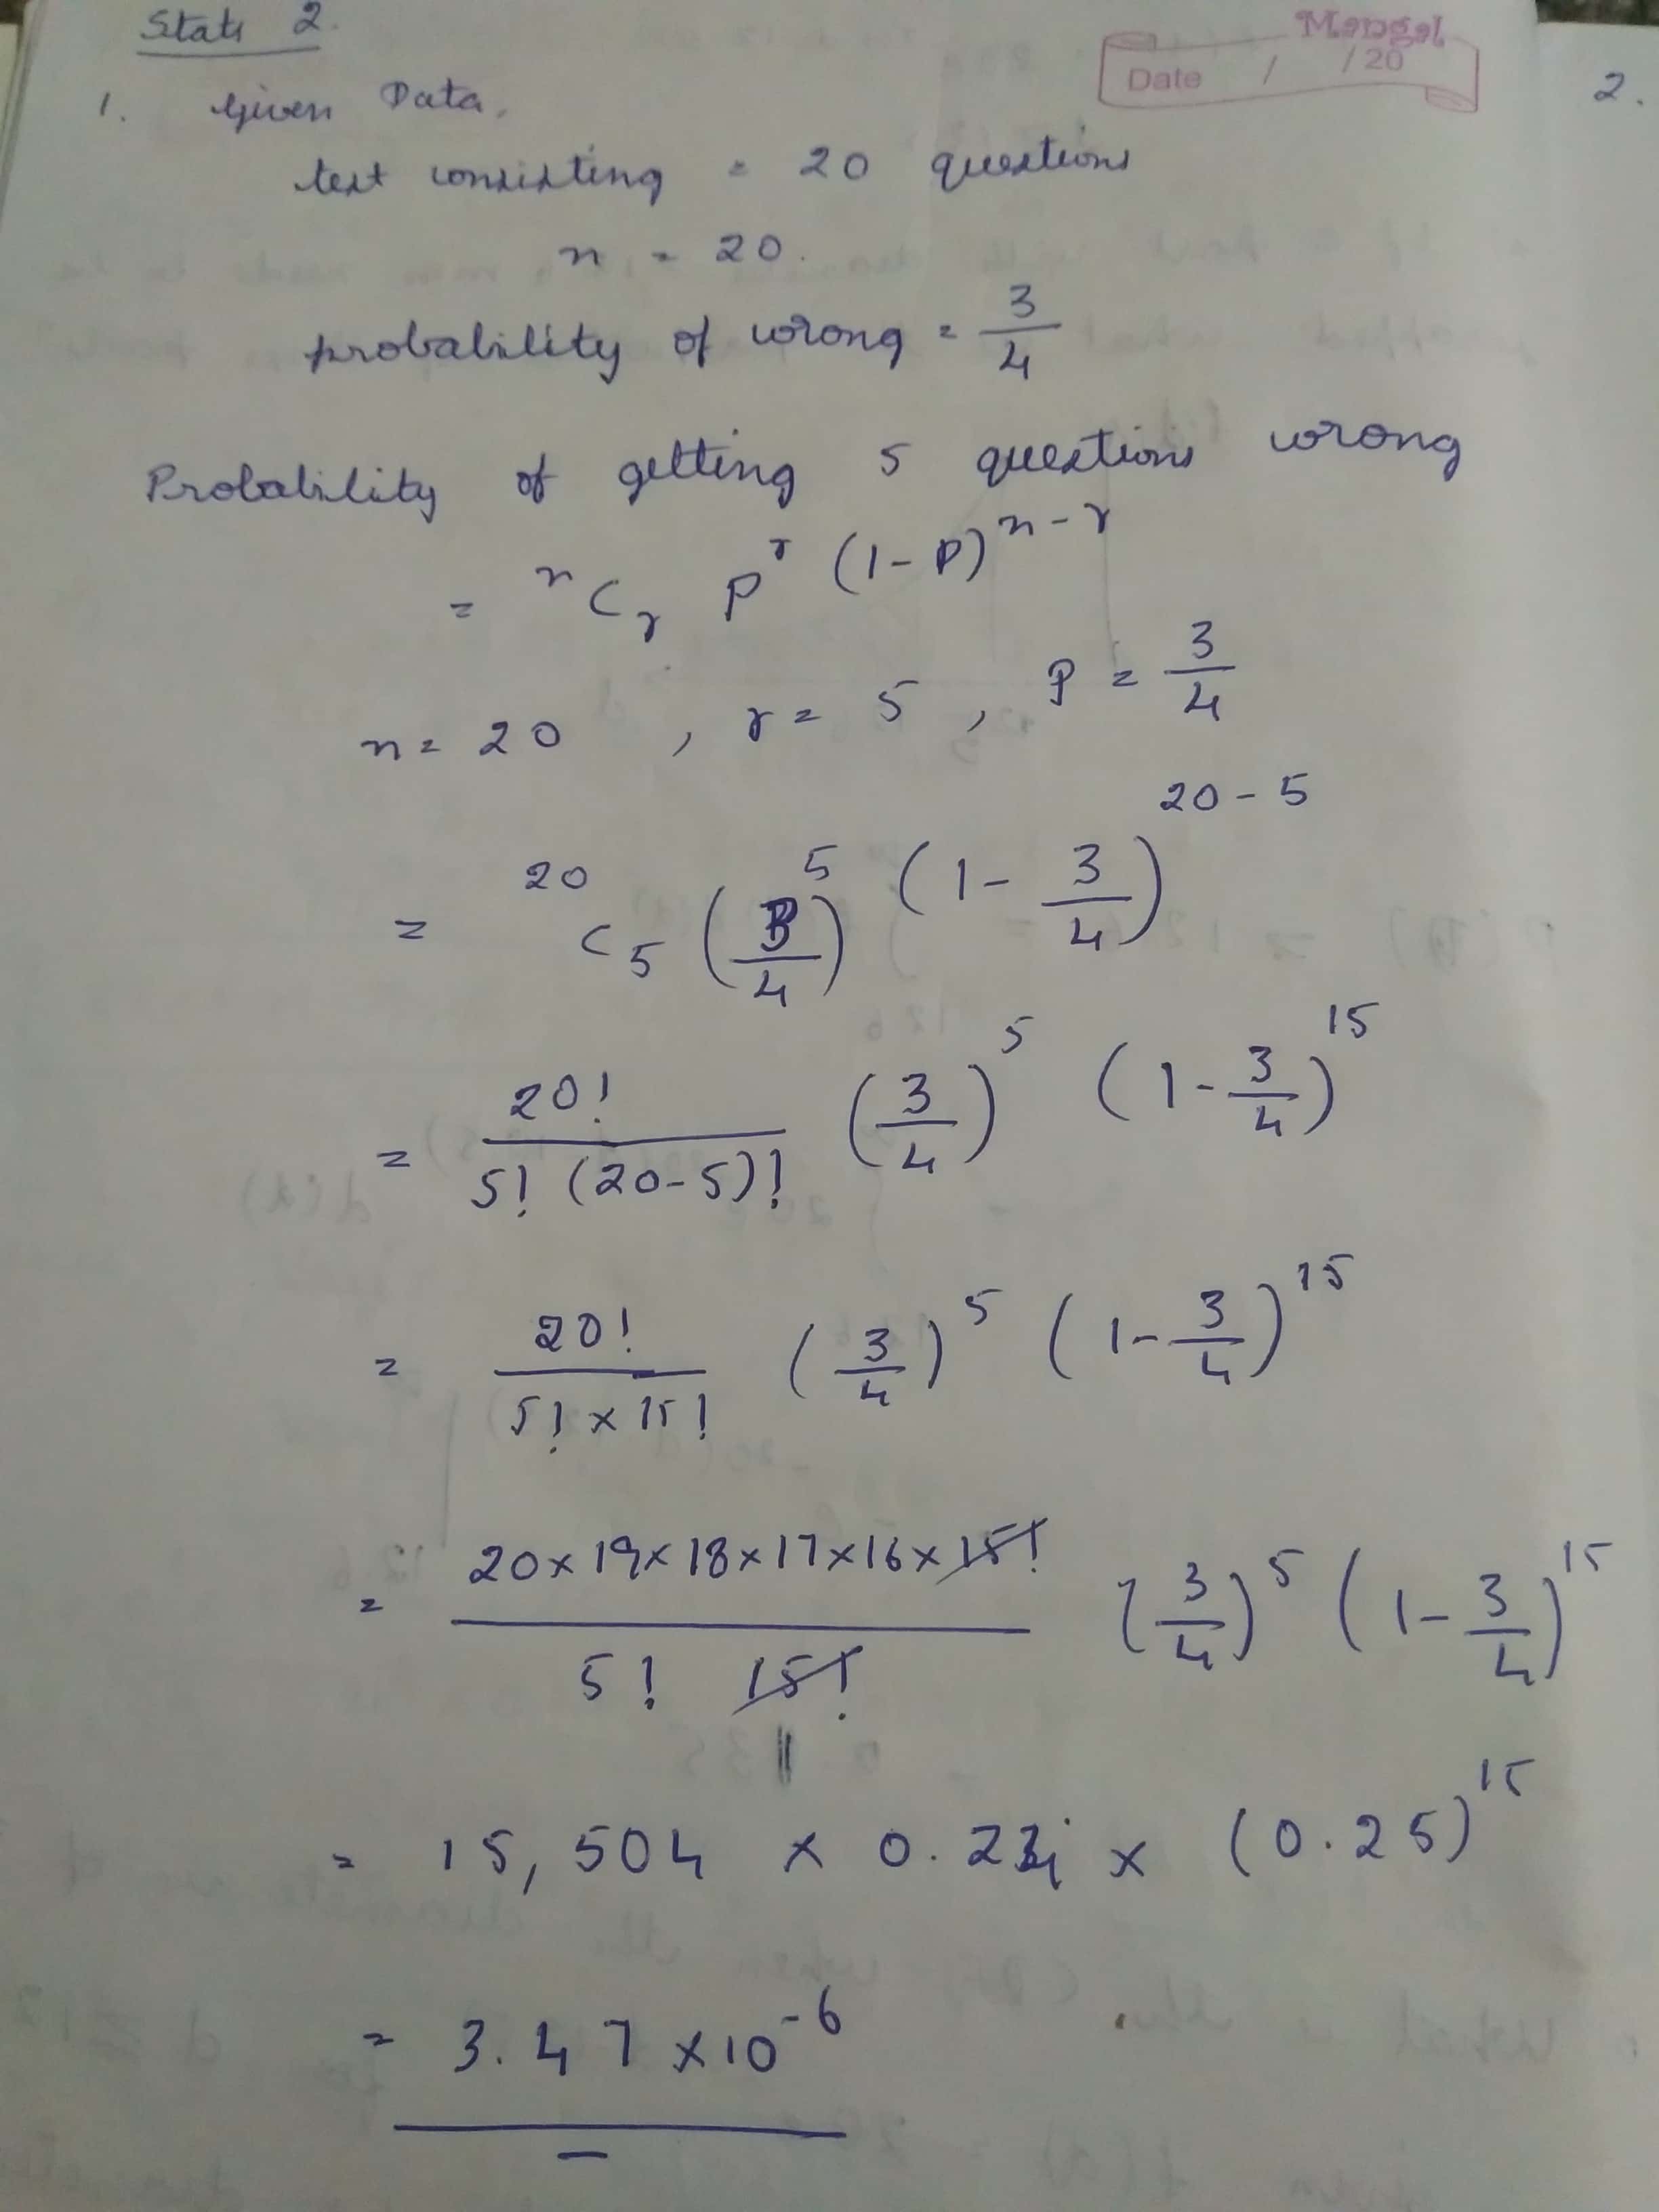 Stats 2.
Mangal
Date / /20
2.
1. Given Data,
test consisting = 20 questions
n = 20.
probability of wrong = 3/4
Probability of getting 5 questions wrong
= ⁿCᵣ Pʳ (1-P)ⁿ⁻ʳ
n = 20 , r = 5 , P = 3/4
= ²⁰C₅ (3/4)⁵ (1 - 3/4)²⁰⁻⁵
= 20! / 5! (20-5)! (3/4)⁵ (1 - 3/4)¹⁵
= 20! / 5! × 15! (3/4)⁵ (1 - 3/4)¹⁵
= 20×19×18×17×16×15! / 5! 15! (3/4)⁵ (1 - 3/4)¹⁵
= 15,504 × × (0.25)¹⁵
= 3.47 × 10⁻⁶